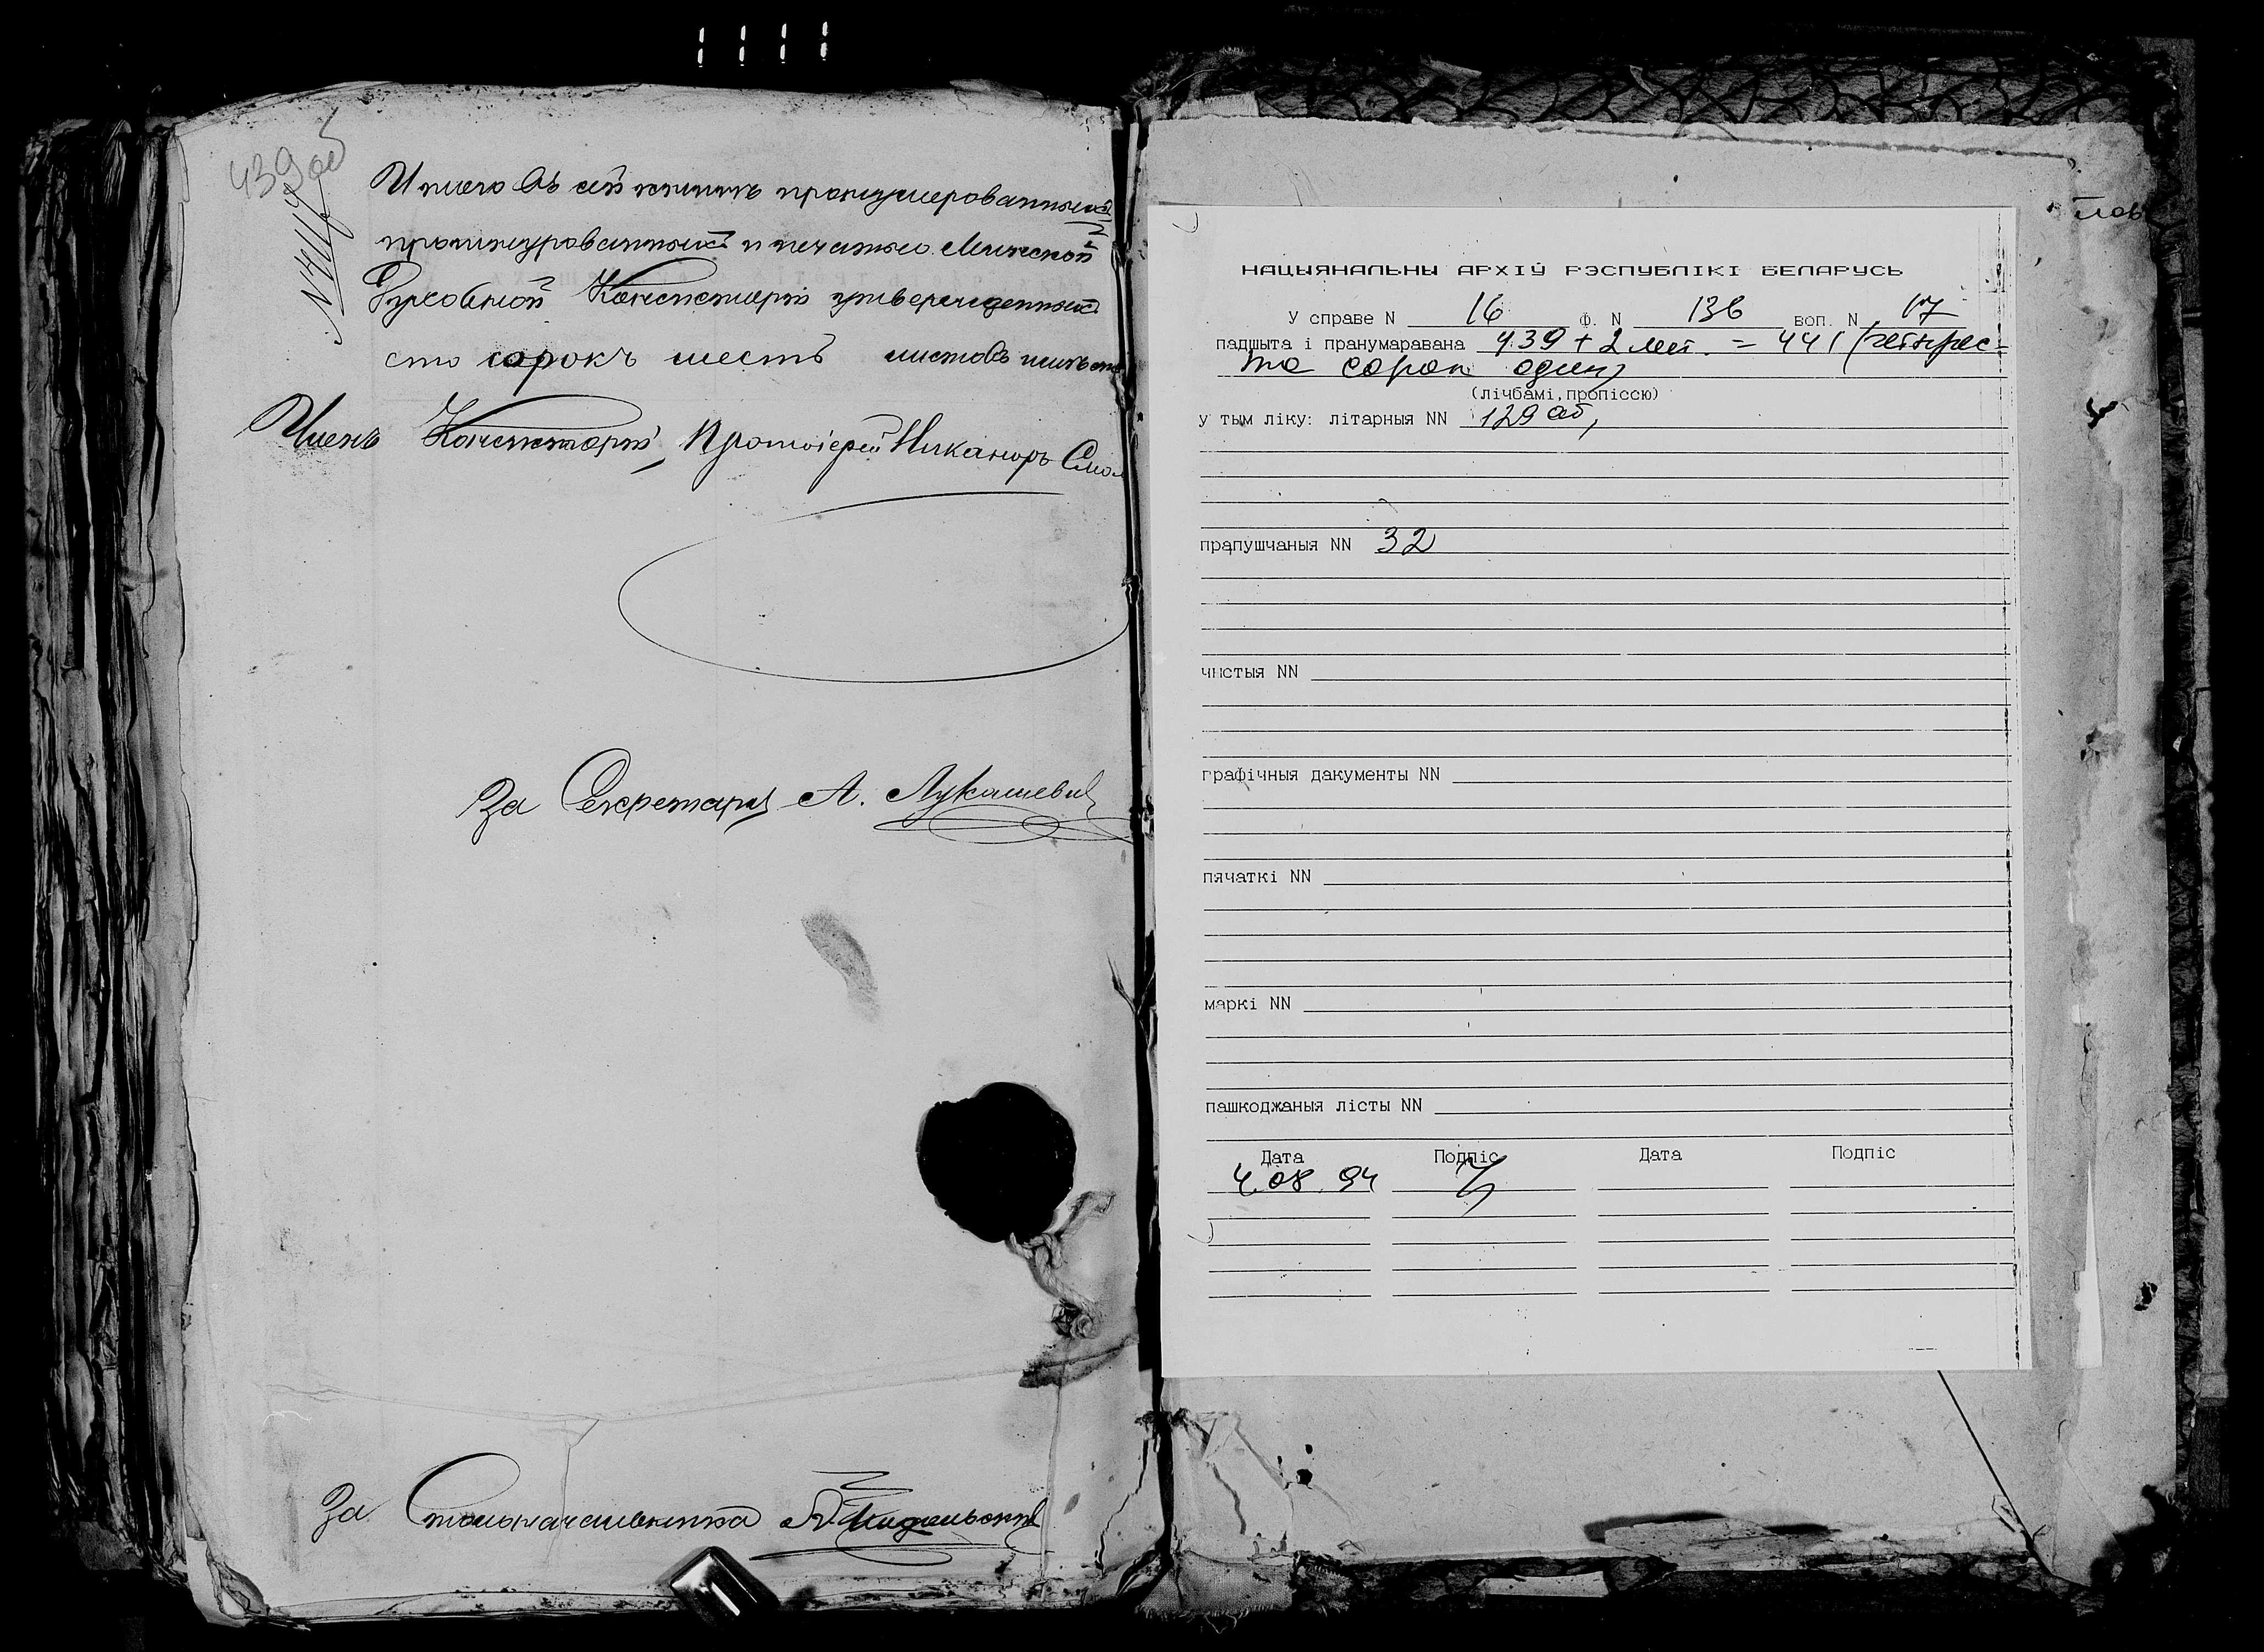 439 об
Итого въ сей книгѣ пронумерованныхъ
прошнурованныхъ и печатью Минской
Духовной Консисторіи утвержденныхъ
сто сорокъ шесть листовъ
Членъ Консисторіи, Протоіерей Никаноръ Смол
За Секретаря А. Лукашевич
За Столоначальника
НАЦЫЯНАЛЬНЫ АРХІЎ РЭСПУБЛІКІ БЕЛАРУСЬ
У справе N 16 Ф. N 136 воп. N 17
падшыта і пранумаравана 439 + 2 лит. = 441 (четырес-
та сорок один)
(лічбамі, пропіссю)
у тым ліку: літарныя NN 129 аб,
прапушчаныя NN 32
чыстыя NN
графічныя дакументы NN
пячаткі NN
маркі NN
пашкоджаныя лісты NN
Дата Подпіс Дата Подпіс
4.08.94